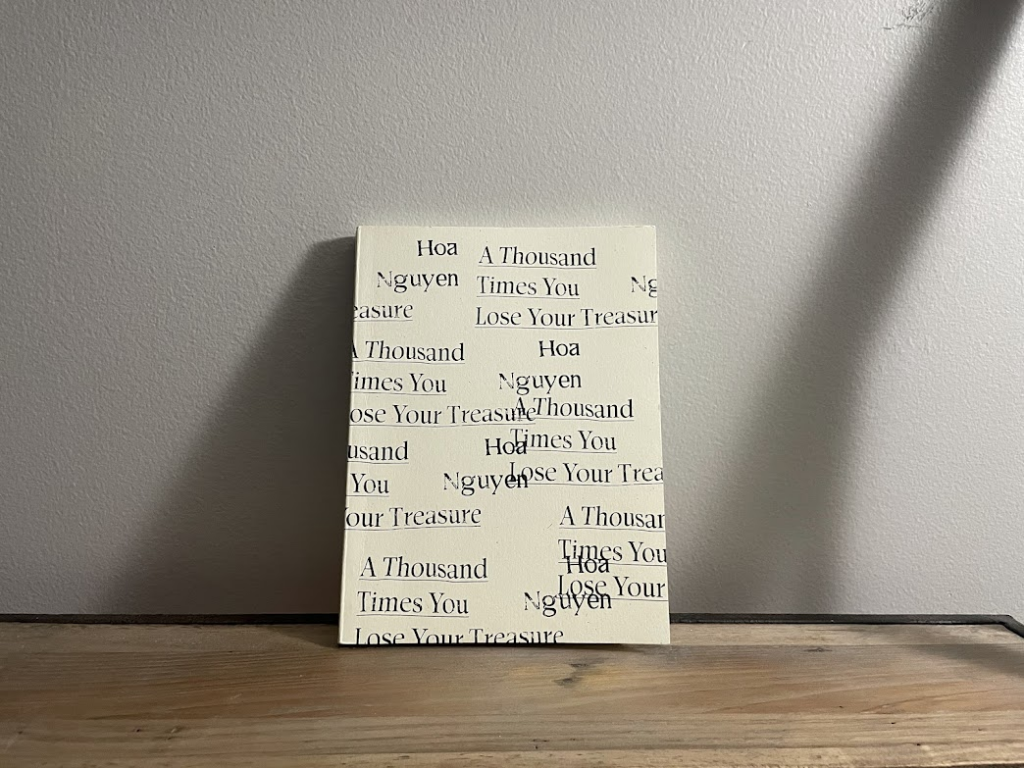 Hoa
Nguyen
A Thousand
Times You
Lose Your Treasur
Ng
easure
A Thousand
Times You
ose Your Treasure
Hoa
Nguyen
A Thousand
Times You
Lose Your Trea
usand
You
our Treasure
Hoa
Nguyen
A Thousan
Times You
Lose Your
Hoa
Nguyen
A Thousand
Times You
Lose Your Treasure